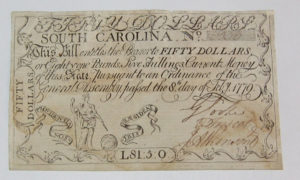 FIFTY DOLLARS
SOUTH CAROLINA. No.
This Bill entitles the Bearer to FIFTY DOLLARS,
or Eighty one Pounds, five Shillings Current Money
of this State, Pursuant to an Ordinance of the
General Assembly, passed the 8th day of Feb. 1779
FIFTY
DOLLARS.
L81.5.0